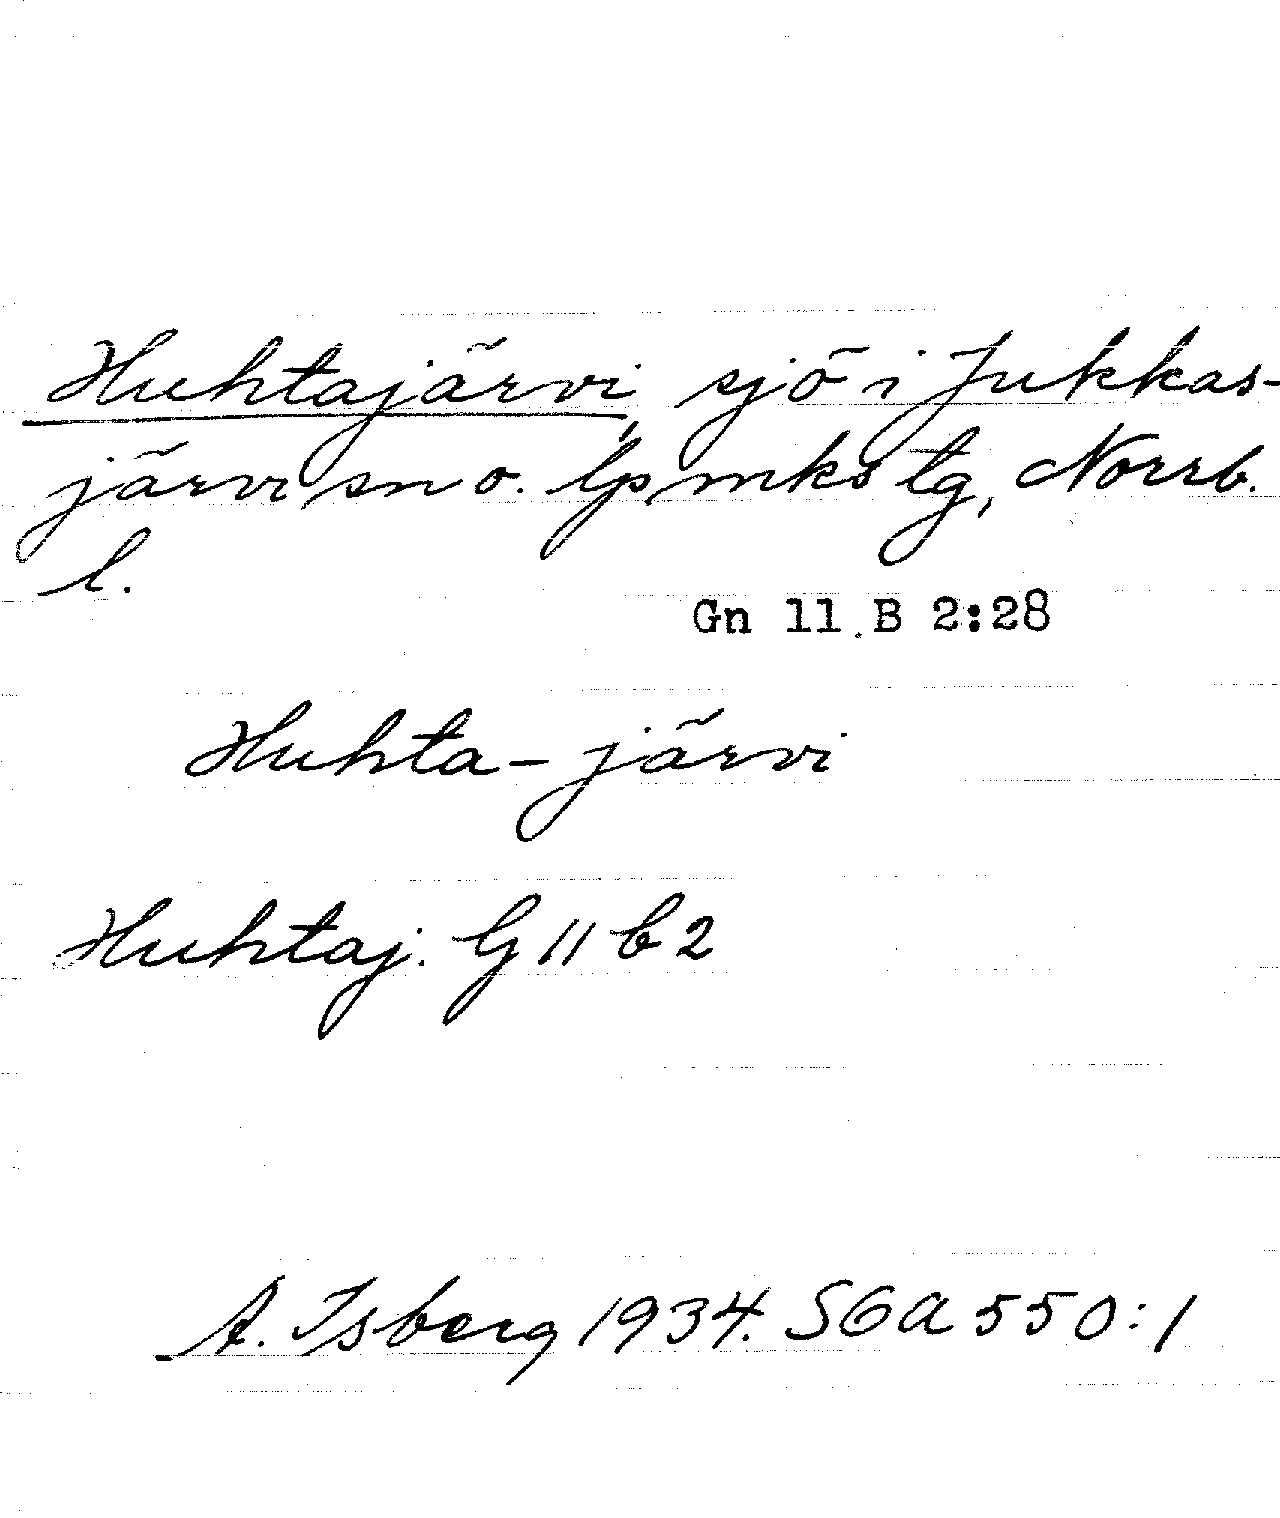 Huhtajärvi, sjö i Jukkas-
järvi sn o. lpmks tg, Norrb.
l.
Gn 11 B 2:28
Huhta-järvi
Huhtaj. G 11 b 2
A. Isberg 1934. SGA 550:1